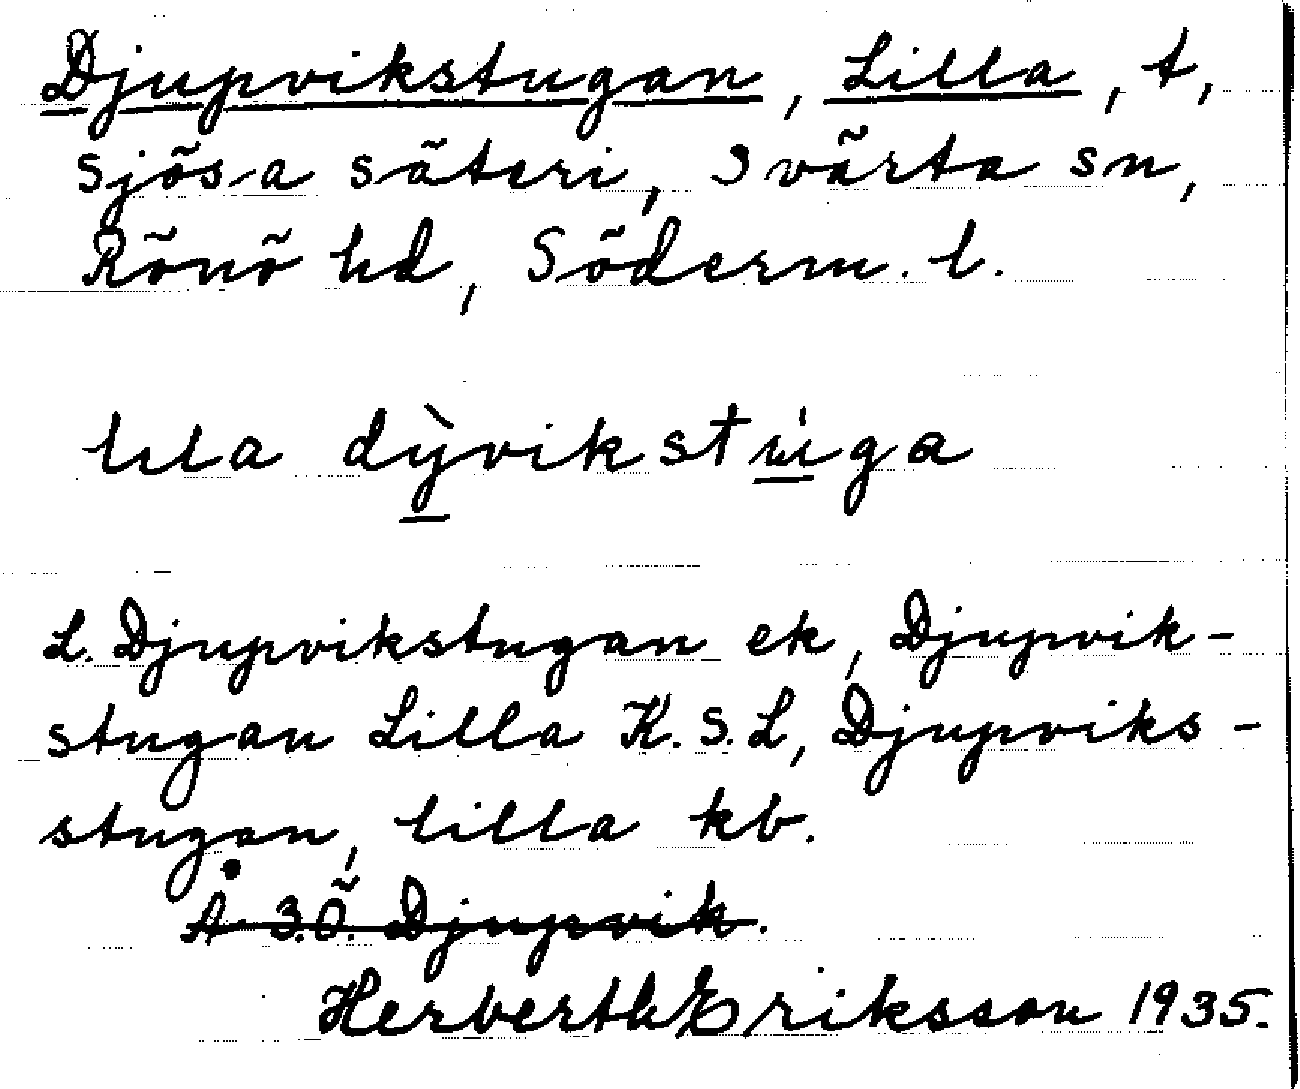 Djupvikstugan, Lilla, t,
Sjösa säteri, Svärta sn,
Rönö hd, Söderm. l.
lıla dỳvikstu̇ga
L. Djupvikstugan ek, Djupvik-
stugan Lilla K.S.L, Djupviks-
stugan, lilla kb.
Å 3.Ö. Djupvik.
Herberth Eriksson 1935.